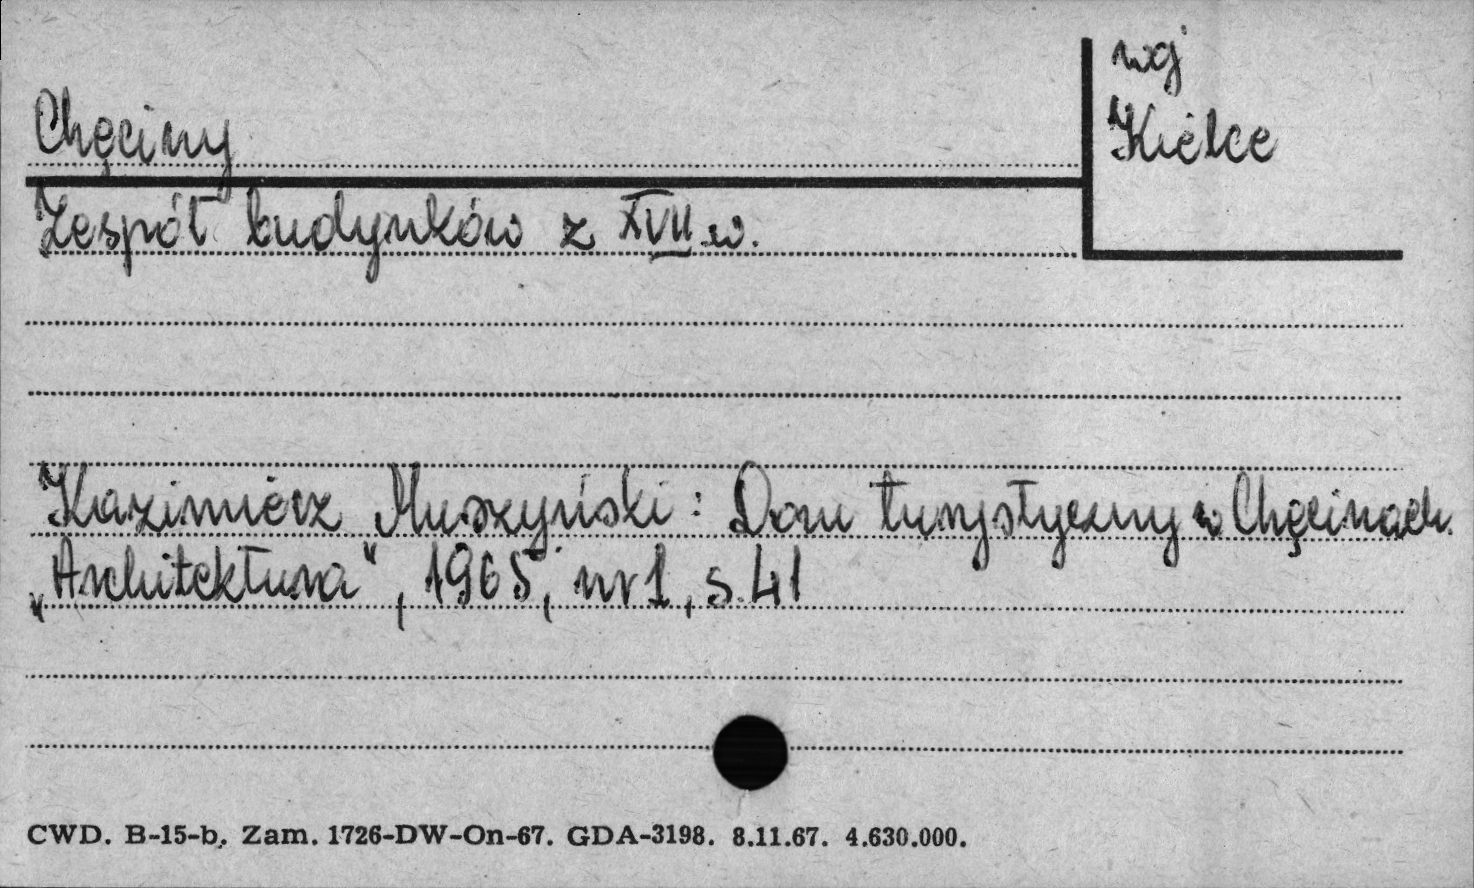 woj
Kielce
Chęciny
Zespół budynków z XVII w.
Kazimierz Muszyński: Dom turystyczny w Chęcinach.
„Architektura”, 1965, nr 1, s. 41
CWD. B-15-b, Zam. 1726-DW-On-67. GDA-3198. 8.11.67. 4.630.000.